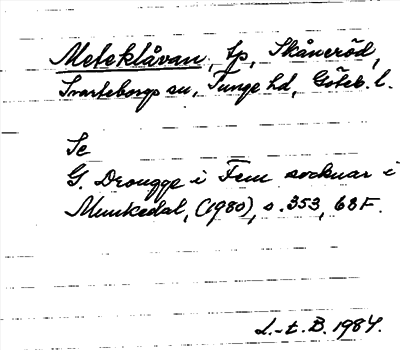 Meteklåvan, tp, Skåneröd,
Svarteborgs sn, Tunge hd, Göteb. l.
Se
G. Drougge i Fem socknar i
Munkedal, (1980), s. 353, 68F.
L.-t. B. 1984.